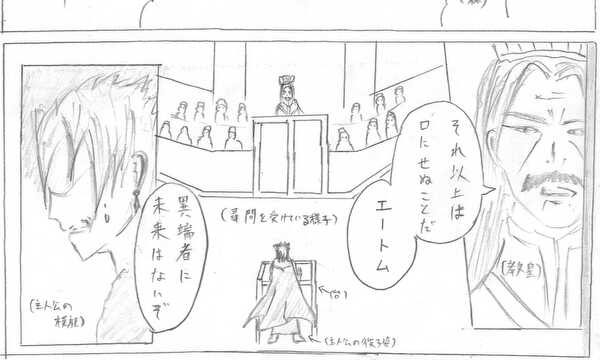 それ以上は
口にせぬことだ
エートム
(教皇)
(尋問を受けている様子)
異端者に
未来はないぞ
(台)
(主人公の後ろ姿)
(主人公の
横顔)